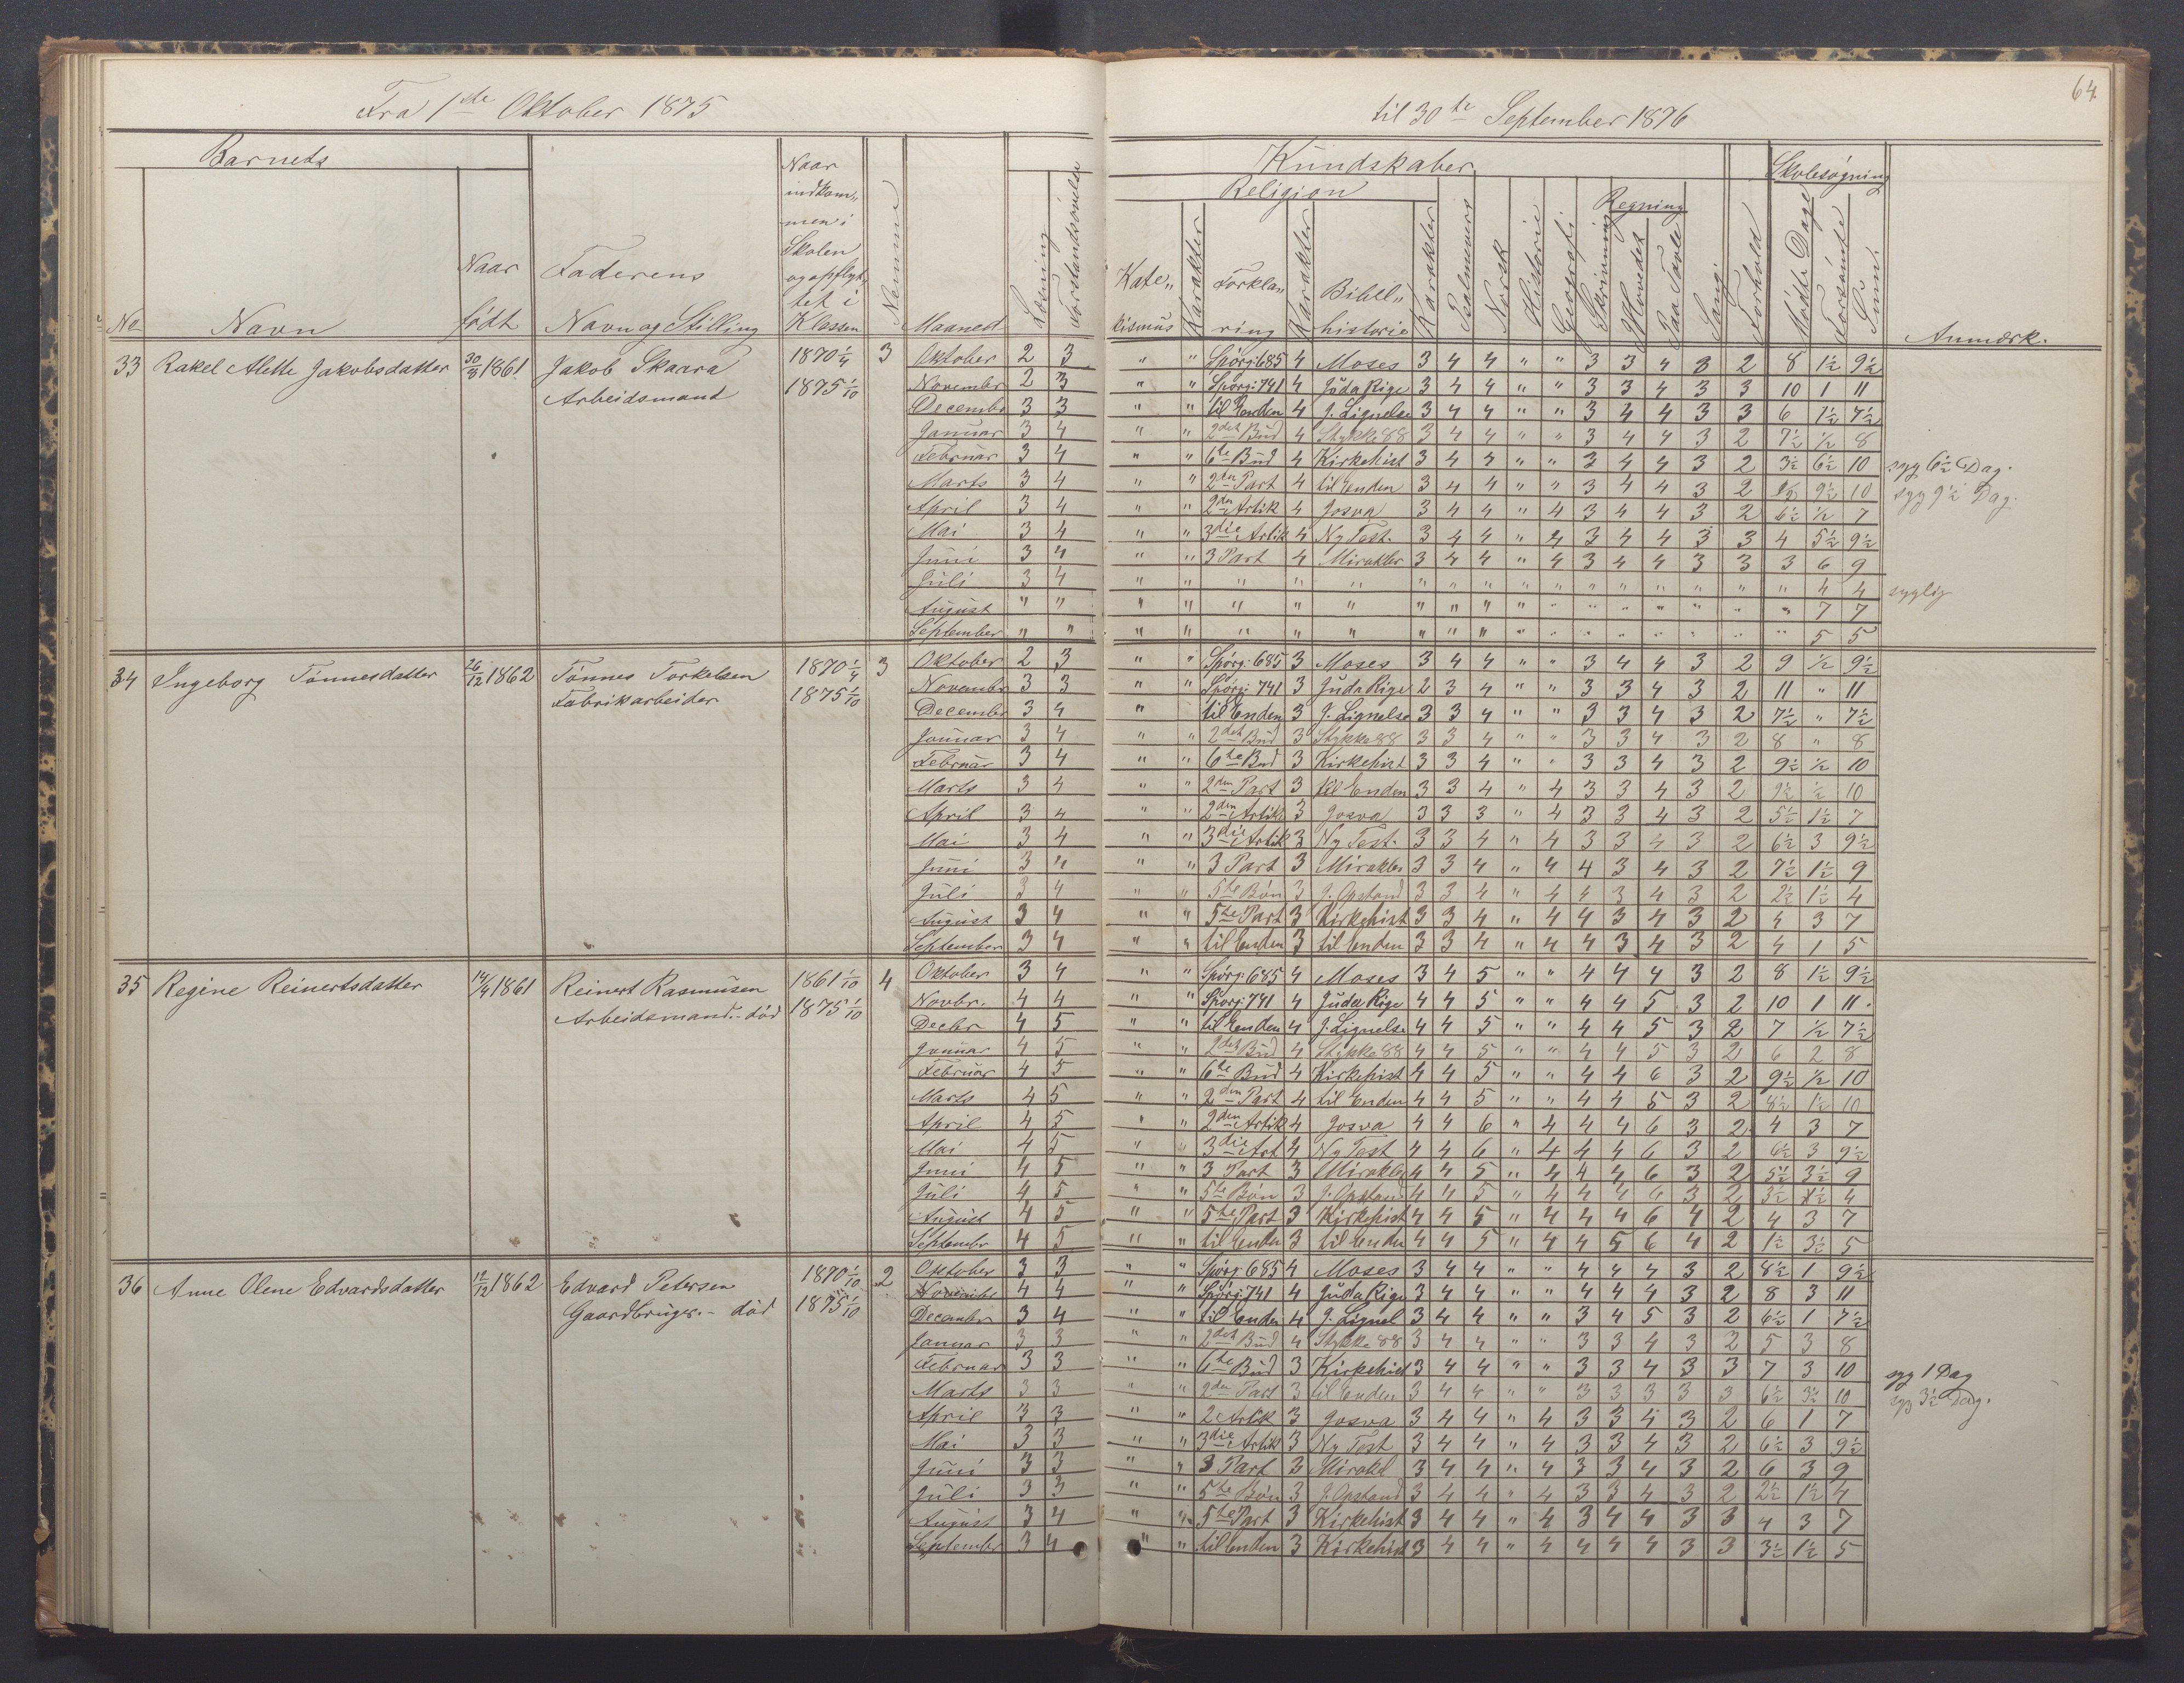 64
Fra 1ste Oktober 1875 til 30te September 1876
Barnets Kundskaber Skolesøgning
No Navn Naar født Faderens Navn og Stilling Naar indkom„ men i Skolen og opflyt„ tet i Klassen Nemme Maaned Læsning Forstandsøvelse Religion Kate„ kismus Karakter Forkla„ ring Karakter Bibel„ historie Karakter Psalmevers Norsk Historie Geografi Skrivning Regning Hovedet Paa Tavle Sang Forhold Mødte Dage Forsømte Sum Anmærk.
33 Rakel Alette Jakobsdatter 30/8 1861 Jakob Skaara 1870 1/4 3 Oktober 2 3 " " Spörg: 685 4 Moses 3 4 4 " " 3 3 4 3 2 8 1½ 9½
Arbeidsmand 1875 1/10 November 2 3 " " Spörg: 741 4 Juda Rige 3 4 4 " " 3 3 4 3 3 10 1 11
Decembr 3 3 " " til Enden 4 J. Lignelse 3 4 4 " " 3 4 4 3 3 6 1½ 7½
Januar 3 4 " " 2det Bud 4 Stykke 88 3 4 4 " " 3 4 4 3 2 7½ ½ 8
Februar 3 4 " " 6te Bud 4 Kirkehist 3 4 4 " " 3 4 4 3 2 3½ 6½ 10 syg 6½ Dag.
Marts 3 4 " " 2den Part 4 til Enden 3 4 4 " " 3 4 4 3 2 ½ 9½ 10 syg 9½ Dag.
April 3 4 " " 2den Artik 4 Josva 3 4 4 " 4 3 4 4 3 2 6½ ½ 7
Mai 3 4 " " 3die Artik 4 Ny Test. 3 4 4 " 4 3 4 4 3 3 4 5½ 9½
Juni 3 4 " " 3 Part 4 Mirakler 3 4 4 " 4 3 4 4 3 3 3 6 9
Juli 3 4 " " " " " " " " " " " " " " " " 4 4 syglig
August " " " " " " " " " " " " " " " " " " " 7 7
September " " " " " " " " " " " " " " " " " " " 5 5
34 Ingeborg Tönnesdatter 26/12 1862 Tönnes Torkelsen 1870 1/4 3 Oktober 2 3 " " Spörg: 685 3 Moses 3 4 4 " " 3 4 4 3 2 9 ½ 9½
Fabrikarbeider 1875 1/10 Novembr 3 3 " " Spörg: 741 3 Juda Rige 2 3 4 " " 3 3 4 3 2 11 " 11
December 3 4 " til Enden 3 J. Lignelse 3 3 4 " " 3 3 4 3 2 7½ " 7½
Januar 3 4 " " 2det Bud 3 Stykke 88 3 3 4 " " 3 3 4 3 2 8 " 8
Februar 3 4 " " 6te Bud 3 Kirkehist 3 3 4 " " 3 3 4 3 2 9½ ½ 10
Marts 3 4 " " 2den Part 3 til Enden 3 3 4 " 4 3 3 4 3 2 9½ ½ 10
April 3 4 " " 2den Artik 3 Josva 3 3 3 " 4 3 3 4 3 2 5½ 1½ 7
Mai 3 4 " " 3die Artik 3 Ny Test. 3 3 4 " 4 3 3 4 3 2 6½ 3 9½
Juni 3 4 " " 3 Part 3 Mirakler 3 3 4 " 4 4 3 4 3 2 7½ 1½ 9
Juli 3 4 " " 5te Bön 3 J. Opstand 3 3 4 " 4 4 3 4 3 2 2½ 1½ 4
August 3 4 " " 5te Part 3 Kirkehist 3 3 4 " 4 4 3 4 3 2 4 3 7
September 3 4 " " til Enden 3 til Enden 3 3 4 " 4 4 3 4 3 2 4 1 5
35 Regine Reinertsdatter 14/4 1861 Reinert Rasmusen 1861 1/10 4 Oktober 3 4 " " Spörg: 685 4 Moses 3 4 5 " " 4 4 4 3 2 8 1½ 9½
Arbeidsmand.- död 1875 1/10 Novbr. 4 4 " " Spörg: 741 4 Juda Rige 4 4 5 " " 4 4 5 3 2 10 1 11.
Decbr 4 5 " " til Enden 4 J. Lignelse 4 4 5 " " 4 4 5 3 2 7 ½ 7½
Januar 4 5 " " 2det Bud 4 Stykke 88 4 4 5 " " 4 4 5 3 2 6 2 8
Februar 4 5 " " 6te Bud 4 Kirkehist 4 4 5 " " 4 4 6 3 2 9½ ½ 10
Marts 4 5 " " 2den Part 4 til Enden 4 4 5 " " 4 4 5 3 2 8½ 1½ 10
April 4 5 " " 2den Artik 4 Josva 4 4 6 " 4 4 4 6 3 2 4 3 7
Mai 4 5 " " 3die Art 4 Ny Test 4 4 6 " 4 4 4 6 3 2 6½ 3 9½
Juni 4 5 " " 3 Part 3 Mirakler 4 4 5 " 4 4 4 6 3 2 5½ 3½ 9
Juli 4 5 " " 5te Bön 3 J. Opstand 4 4 5 " 4 4 4 6 3 2 3½ ½ 4
August 4 5 " " 5te Part 3 Kirkehist 4 4 5 " 4 4 4 6 4 2 4 3 7
Septembr 4 5 " " til Enden 3 til Enden 4 4 5 " 4 4 5 6 4 2 1½ 3½ 5
36 Anne Olene Edvardsdatter 12/12 1862 Edvard Petersen 1870 1/10 2 Oktober 3 3 " " Spörg: 685 4 Moses 3 4 4 " " 4 4 4 3 2 8½ 1 9½
Gaardbruger.- död 1875 1/10 November 4 4 " " Spörg: 741 4 Juda Rige 3 4 4 " " 4 4 4 3 2 8 3 11
Decembr 3 4 " " til Enden 4 J. Lignel 3 4 4 " " 3 4 5 3 2 6½ 1 7½
Januar 3 3 " " 2det Bud 4 Stykke 88 3 4 4 " " 3 3 4 3 2 5 3 8
Februar 3 3 " " 6te Bud 3 Kirkehist 3 4 4 " " 3 3 4 3 3 7 3 10 syg 1 Dag
Marts 3 3 " " 2den Part 3 til Enden 3 4 4 " " 3 3 3 3 3 6½ 3½ 10 syg 3½ Dag.
April 3 3 " " 2 Artik 3 Josva 3 4 4 " 4 3 3 4 3 2 6 1 7
Mai 3 3 " " 3die Artik 3 Ny Test 3 4 4 " 4 3 3 4 3 2 6½ 3 9½
Juni 3 3 " " 3 Part 3 Mirakl 3 4 4 " 4 3 3 4 3 2 6 3 9
Juli 3 3 " " 5te Bön 3 J. Opstand 3 4 4 " 4 3 3 4 3 2 2½ 1½ 4
August 3 4 " " 5te Part 3 Kirkehist 3 4 4 " 4 3 4 4 3 3 4 3 7
Septembr 3 4 " " til Enden 3 Kirkehist 3 4 4 " 4 4 4 4 3 3 3½ 1½ 5